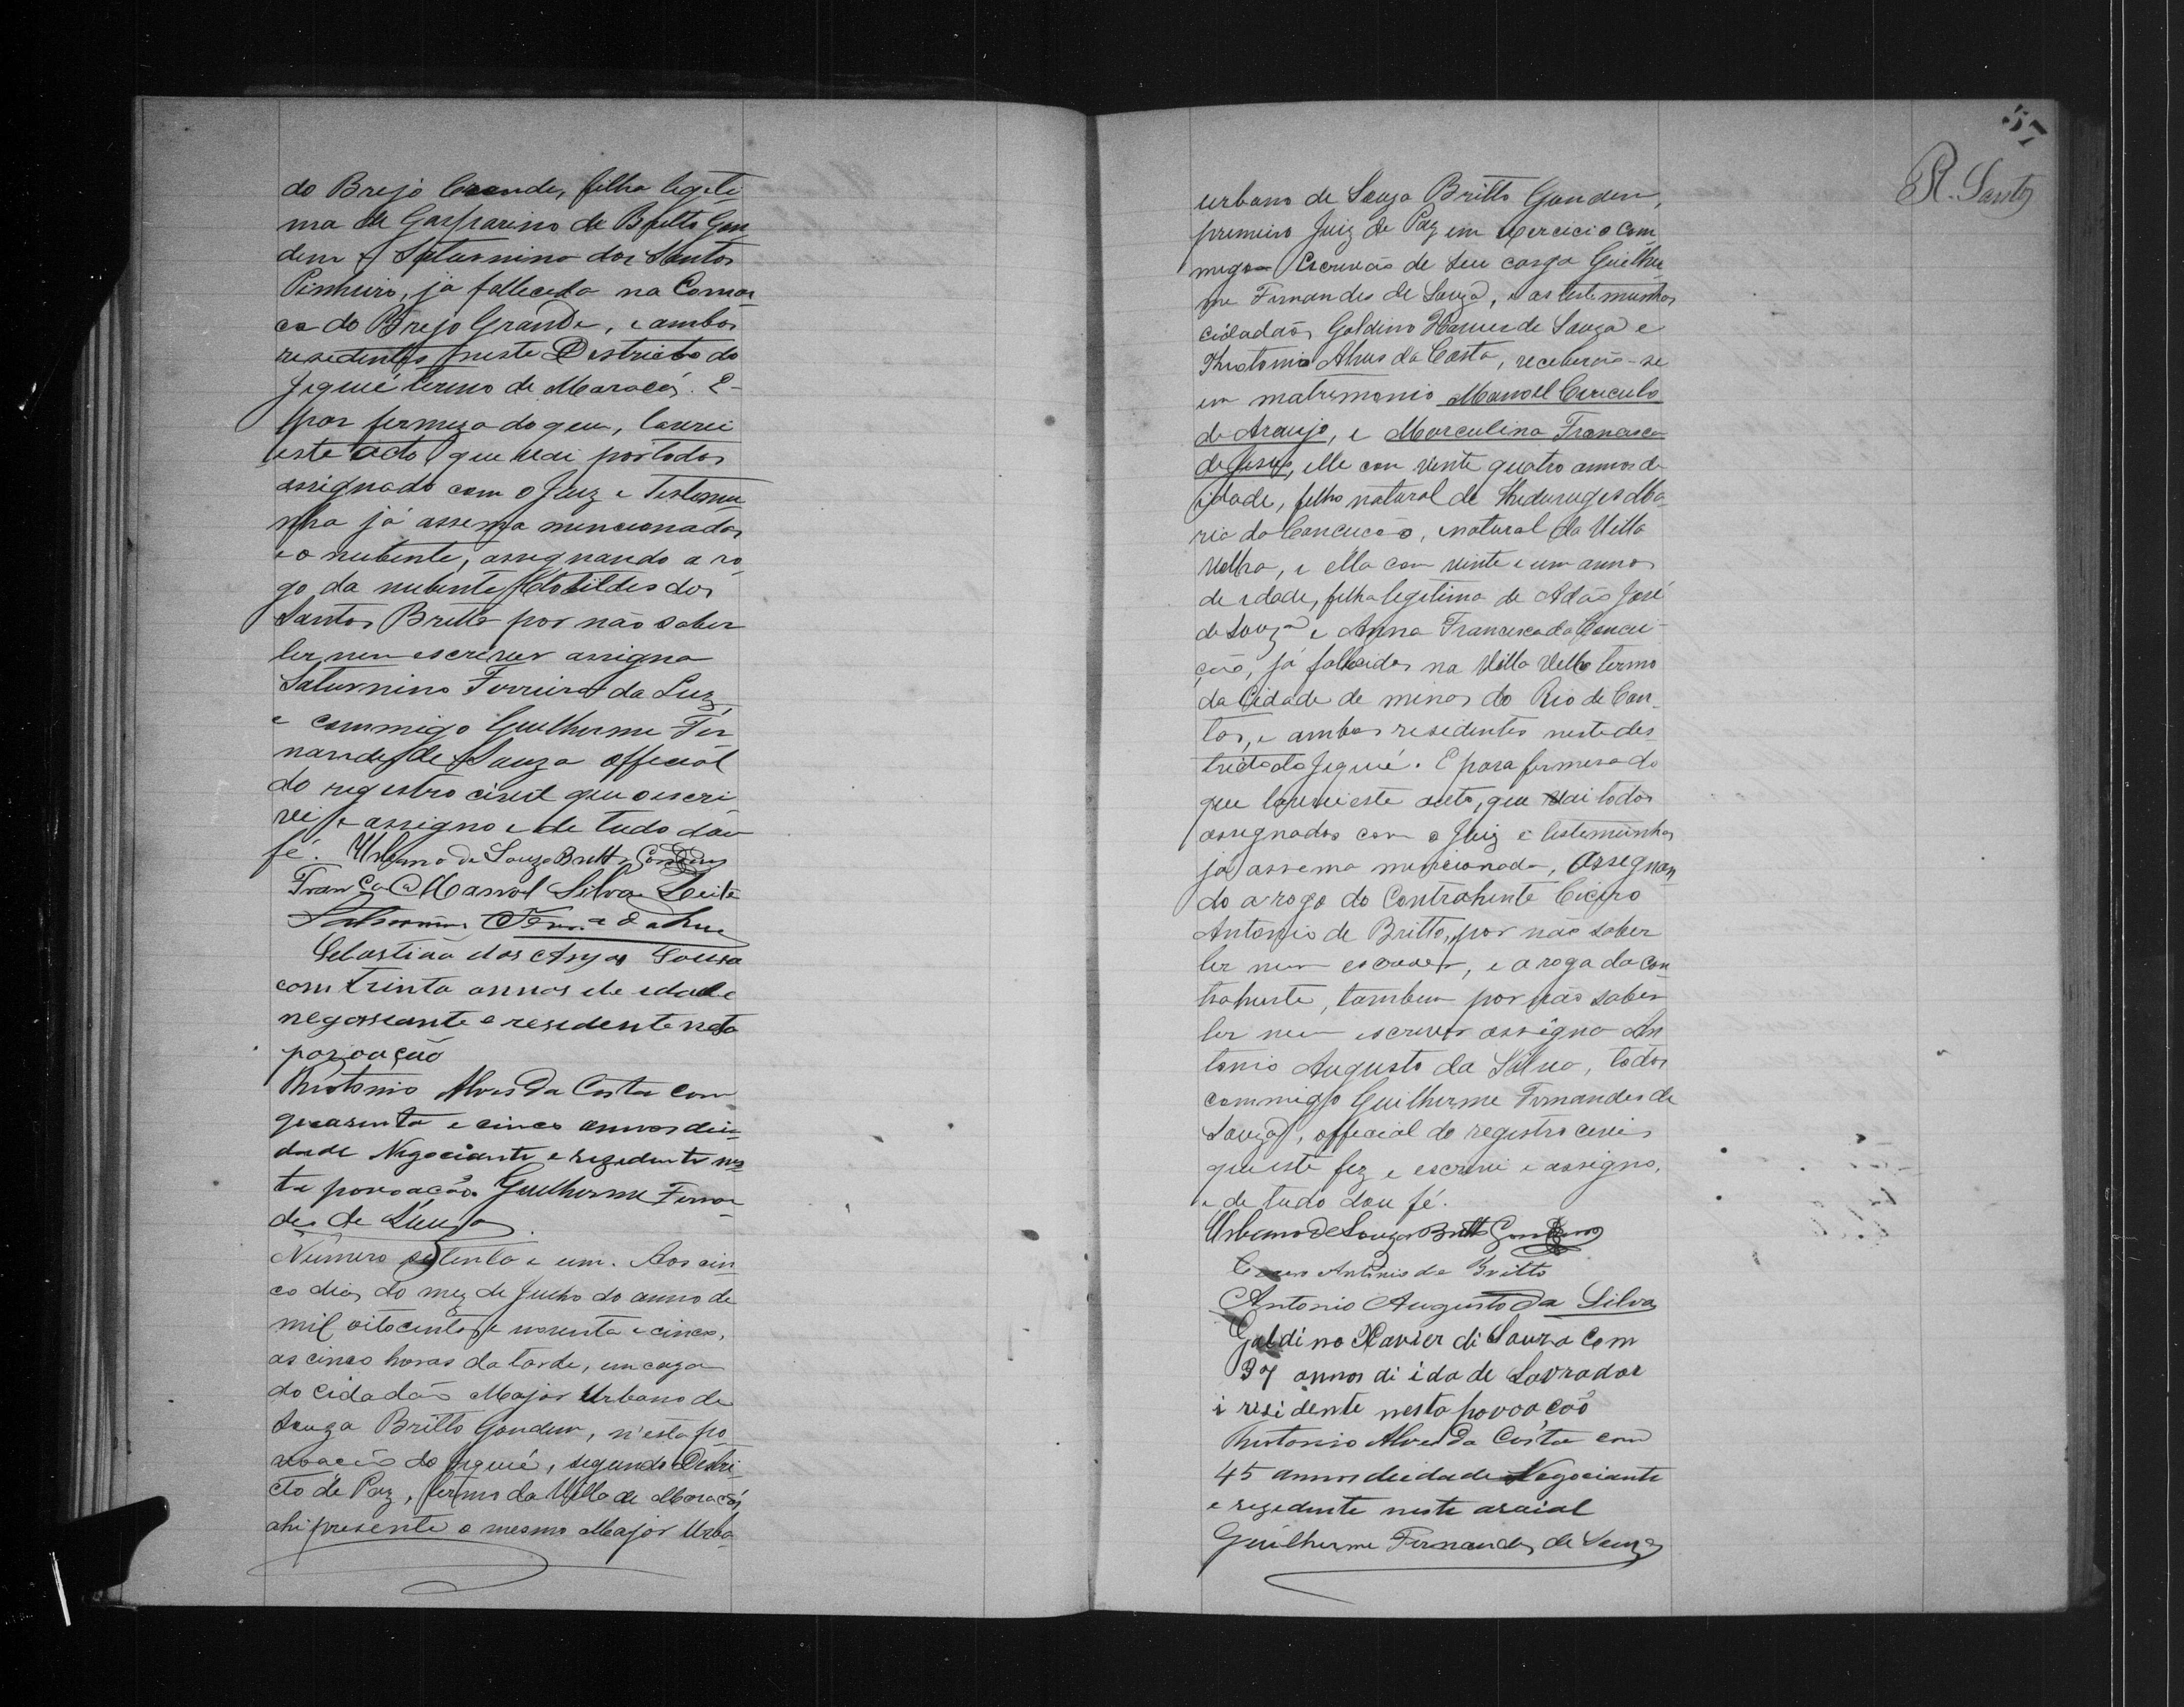 do Brejo Grande, filha legiti-
ma de Gasparino de Britto Gon
dem e Saturnino dos Santos
Pinheiro, já fallecida na Comar
ca do Brejo Grande, e ambos
residentes neste Districto do
Jequié termo de Maracás. E-
por firmeza do que, lavrei
este acto que vai por todos
assignado com o Juiz e Testemu-
nha já assema mencionados
e o nubente, assignando a ro-
go da nubente Clotildes dos
Santos Britto por não saber
ler nem escrever assigna
Saturnino Ferreira da Luz,
e commigo Guilherme Fer
nandes de Souza official
do registro civil que o escri
vi e assigno e de tudo dou
fé. Urbano de Souza Britto Gondim
Franca Manoel Silva Leite
Saturnino Ferra da Luz
Sebastião dos Anjos Sousa
com trinta annos de edade
negossiante e residente nesta
povoação
Thiotonio Alves da Costa com
quarenta e cinco annos dei-
dade Negociante e rezidente nes
ta povoação. Guilherme Fernan-
des de Souza
Numero setenta e um. Aos cin-
co dias do mez de Julho do anno de
mil oitocentos e noventa e cinco,
as cinco horas da tarde, em caza
do cidadão Major Urbano de
Souza Britto Gondim, n'esta po
voação do Jequié, segundo Destri-
cto de Paz, termo da Villa de Maracás,
ahi presente o mesmo Major Urba-
57
R. Santos
urbano de Souza Britto Gondem,
premeiro Juiz de Paz em exercicio Com
migo Escrivão de seu cargo Guilher
me Fernandes de Souza, e as testemunhas
cidadãos Galdino Xavier de Souza e
Thiotonio Alves da Costa, receberão-se
em matrimonio Manoel Curiculo
de Araujo, e Marculina Francisca
de Jesus, elle com vinte quatro annos de
idade, filho natural de Ma-
ria da Conceicão, natural da Villa
Velha, e ella com vinte e um annos
de edade, filha legitima de Adão José
de Souza e Anna Francisca da Concei-
ção, já fallecidos na Villa Velha termo
da Cidade de minas do Rio de Con-
tas, e ambos residentes neste des
tricto do Jequié. E para firmesa do
que lavrei este auto, que vai todos
assignados com o Juiz e testemunhas
já assema mencionada, Assignan
do a rogo do Contrahente Cicero
Antonio de Britto, por não saber
ler nem escrever, e a rogo da con
trahente, tambem por não saber
ler nem escrever assigna An
tonio Augusto da Silva, todos
commigo Guilherme Fernandes de
Souza, official do registro civis
que este fez e escrevi e assigno,
e de tudo dou fé.
Urbano de Souza Britto Gondim
Cicero Antonio de Britto
Antonio Augusto da Silva
Galdino Xavier di Souza Com
37 annos di idade Lavrador
i residente nesta povoacão
Thiotonio Alves da Costa com
45 annos deidade Negociante
e rezedente neste araial
Guilherme Fernandes de Souza